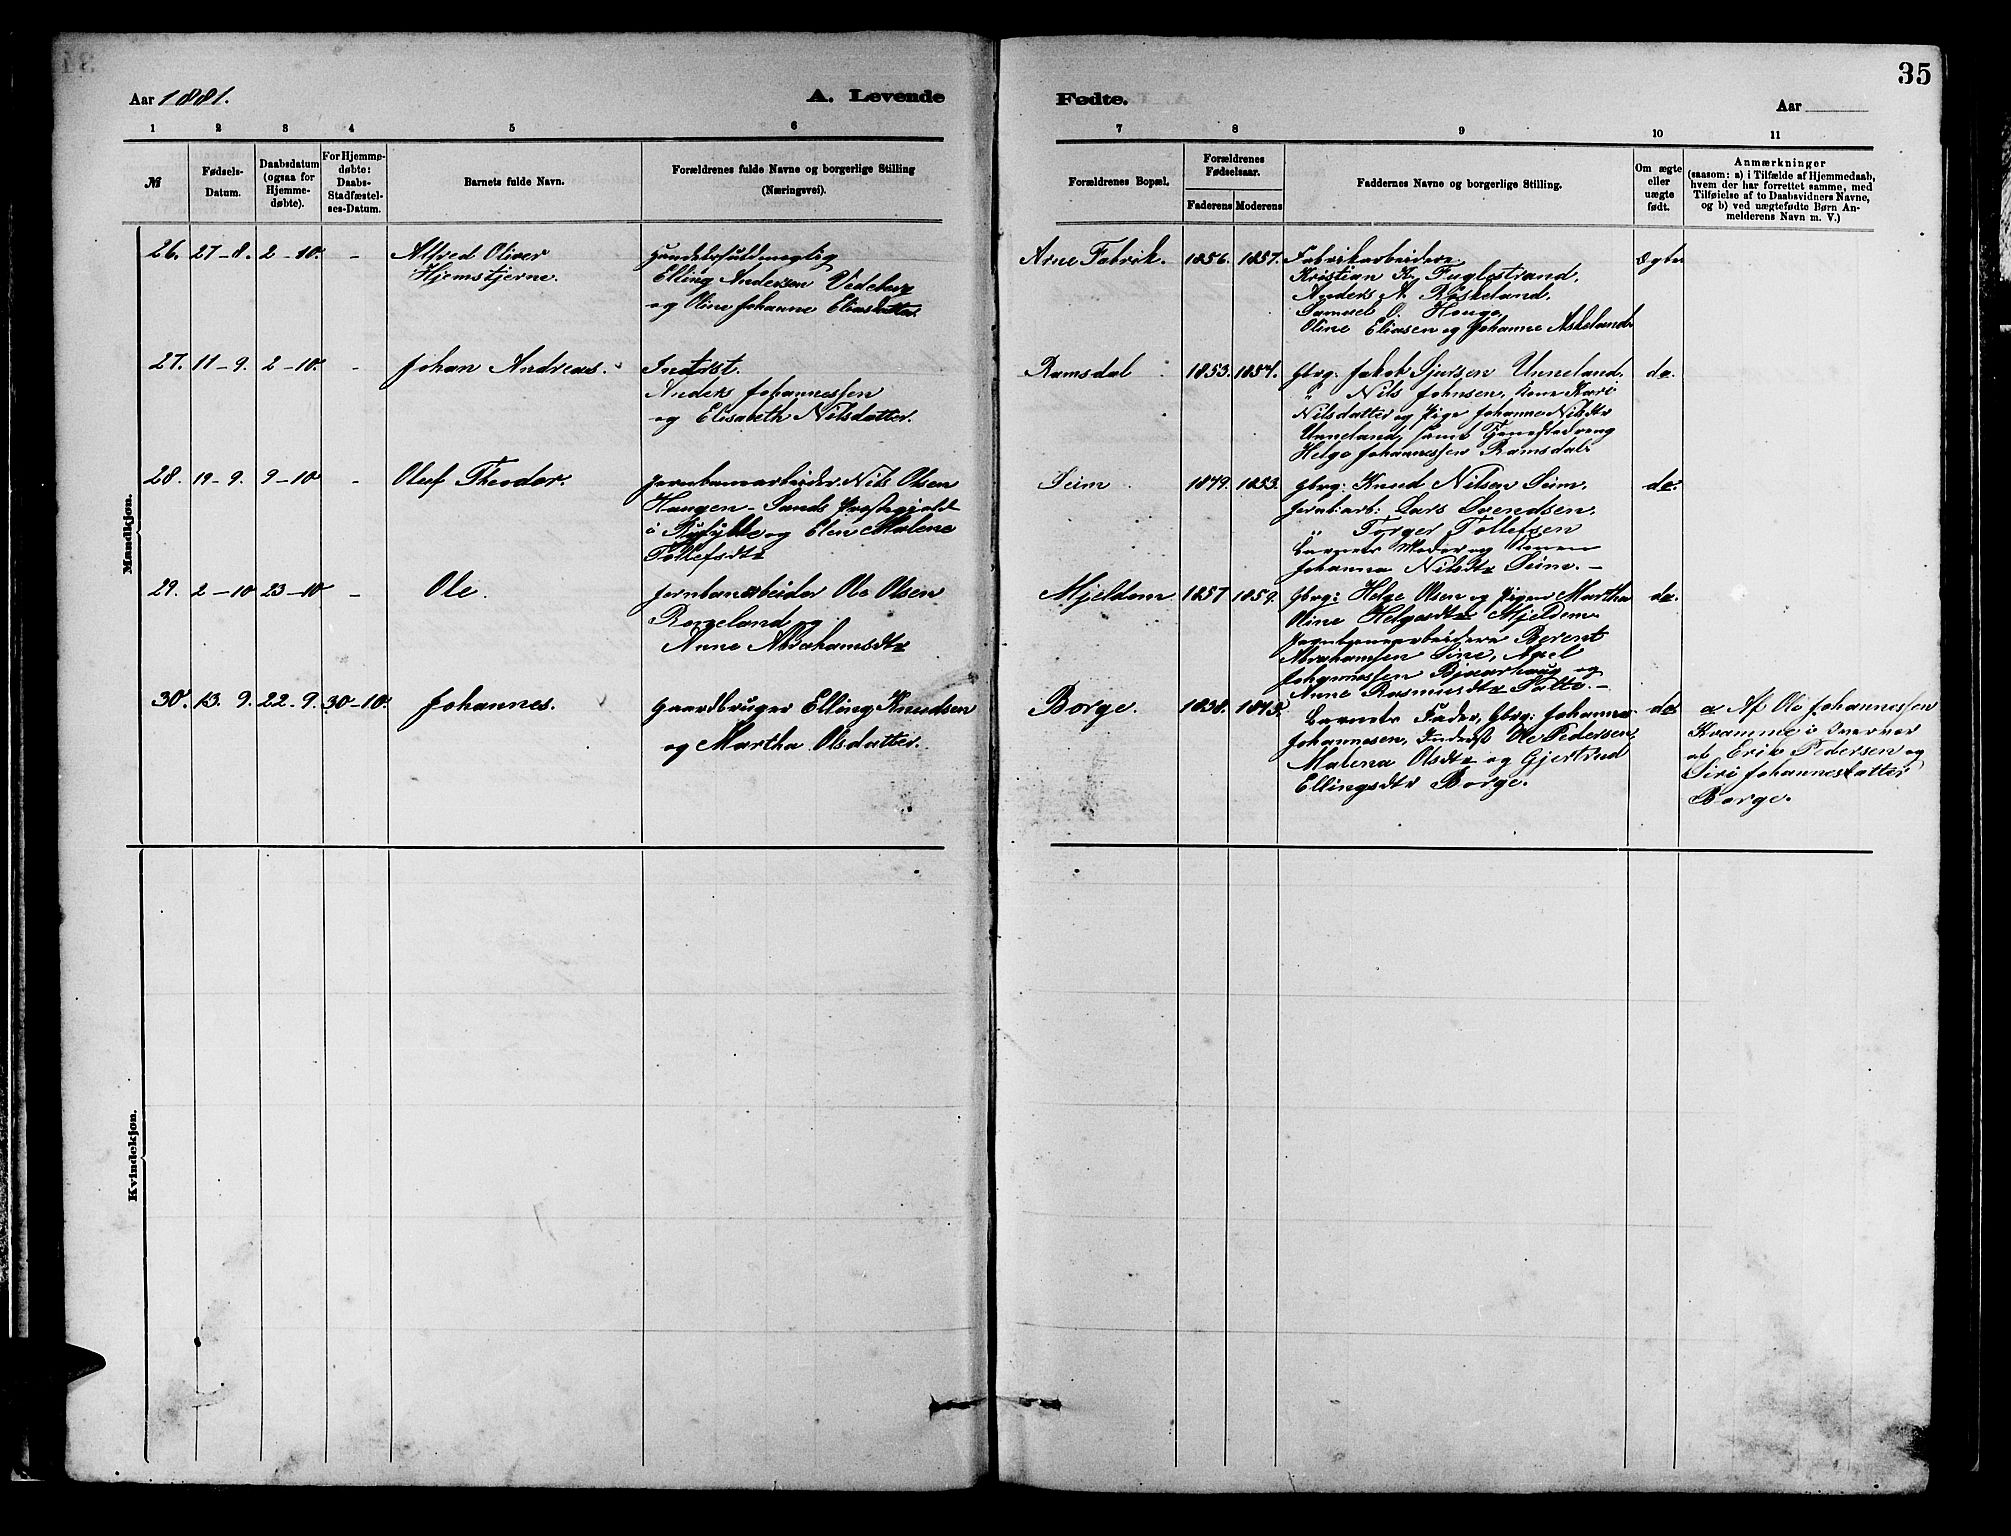 35
Aar 1881.
A. Levende
Fødte.
Aar
1 2 3 4 5 6
7 8 9 10 11
№
Fødsels-
Datum.
Daabsdatum
(ogsaa for
Hjemme-
døbte).
For Hjemme-
døbte:
Daabs-
Stadfæstel-
ses-Datum.
Barnets fulde Navn.
Forældrenes fulde Navne og borgerlige Stilling
(Næringsvei).
Forældrenes Bopæl.
Forældrenes
Fødselsaar.
Faderens Moderens
Faddernes Navne og borgerlige Stilling.
Om ægte
eller
uægte
født.
Anmærkninger
(saasom: a) i Tilfælde af Hjemmedaab,
hvem der har forrettet samme, med
Tilføielse af to Daabsvidners Navne,
og b) ved uægtefødte Børn An-
melderens Navn m. V.)
Mandkjøn.
26. 27-8. 2-10. -
Alfred Oliver
Hjemstjerne.
Handelsfuldmægtig
Elling Andersen
og Oline Johanne Eliasdatter
Arne Fabrik. 1856. 1857.
Fabrikarbeidere
Kristian K. Fuglestrand,
Anders A. Røskeland,
Samuel O. Hauge,
Oline Eliasen og Johanne Askeland
Ægte
27. 11-9. 2-10. -
Johan Andreas.
Inderst.
Anders Johannessen
og Elisabeth Nilsdatter.
Ramsdal 1853. 1854.
Gbrg. Jakob Sjursen Unneland.
" Nils Johnsen, Kone Kari
Nilsdatter og Pige Johanne Nilsdtr
Unneland, samt Tjenestedreng
Helge Johannessen Ramsdal.
do.
28. 19-9. 9-10. -
Oluf Theodor.
Jernbanearbeider Nils Olsen
Haugen - Sands Præstegjeld
i Ryfylke og Elen Malene
Tollefsdtr
Seim 1849. 1853.
Gbrg: Knud Nilsen Seim.
Jernb:arb: Lars Svendsen.
" Torger Tollefsen
Barnets Moder og Konen
Johanna Nilsdtr Seim. -
do.
29. 2-10 23-10 -
Ole.
Jernbanearbeider Ole Olsen
Rongeland og
Anne Abrahamsdtr
Mjeldem 1857 1859.
Gbrg: Helge Olsen og Piger Martha
Oline Helgesdtr Mjeldem
Jernbanearbeidere Berent
Abrahamsen
Johannessen Bjaarhaug og
Anne Rasmusdtr
do.
30. 13.9. 22-9. 30-10.
Johannes.
Gaardbruger Elling Knudsen
og Martha Olsdatter.
Borge. 1838. 1845.
Barnets Fader, Gbrg: Johannes
Johannesen, Inderst Ole Pedersen,
Malena Olsdtr og Gjertrud
Ellingsdtr Borge.
do
a Af Ole Johannessen
Kvamme i
at Erik Pedersen og
Siri Johannesdatter
Borge.
Kvindekjøn.